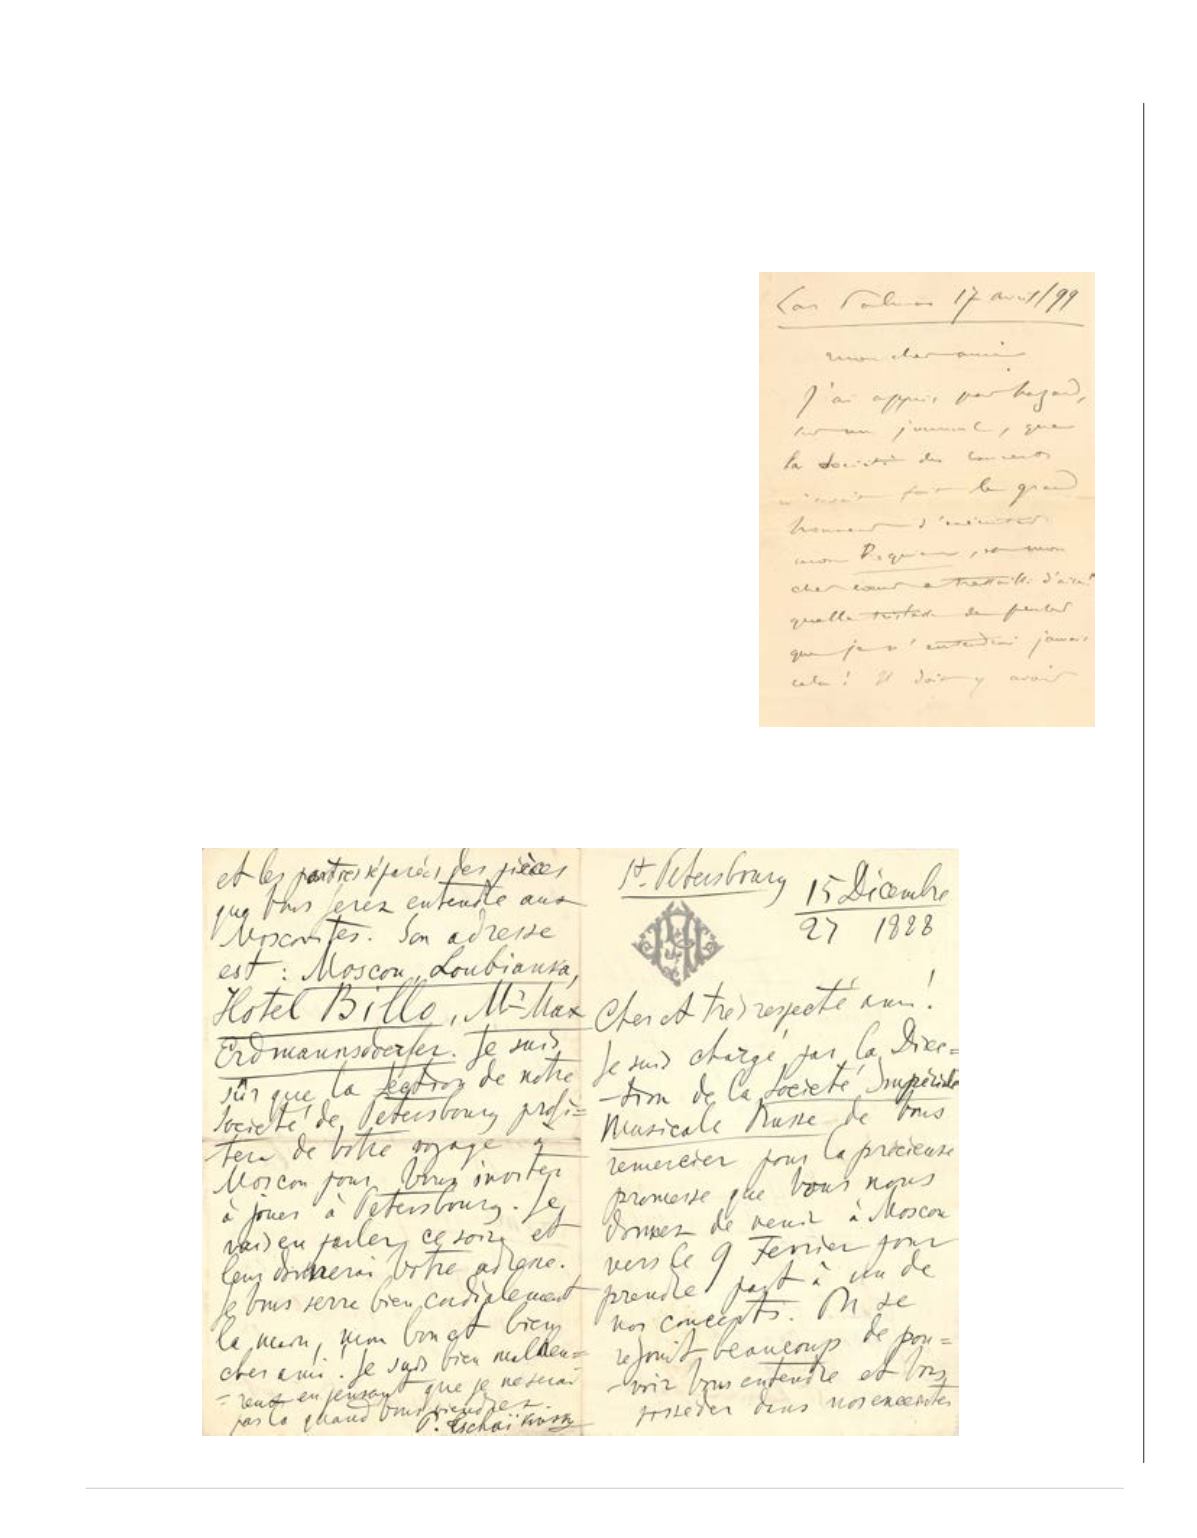 Las Palmas 17 avril/99
mon cher ami
J'ai appris, par hazard,
sur un journal, que
la Société des concerts
m'avait fait le grand
honneur d'exécuter
mon Requiem, et mon
cher cœur a tressailli d'aise!
quelle tristesse de penser
que je n'entendrai jamais
cela! Il doit y avoir
et les parties séparées des pièces
que Vous ferez entendre aux
Moscovites. Son adresse
est : Moscou, Loubianka,
Hotel Billo, Mr Max
Erdmannsdoerfer. Je suis
sûr que la section de notre
Société de Petersbourg profi=
tera de Votre voyage à
Moscou pour Vous inviter
à jouer à Petersbourg. Je
vais en parler ce soir et
leur donnerai Votre adresse.
Je Vous serre bien cordialement
la main, mon bon et bien
cher ami! Je suis bien malheu=
=reux en pensant que je ne serai
pas là quand Vous viendrez.
P. Tschaïkovsky
St. Petersbourg
15 Décembre
27 1888
Cher et très respecté ami!
Je suis chargé par la Direc=
-tion de la Societé Impériale
Musicale Russe de Vous
remercier pour la précieuse
promesse que Vous nous
donnez de venir à Moscou
vers le 9 Fevrier pour
prendre part à un de
nos concerts. On se
rejouit beaucoup de pou=
-voir Vous entendre et Vous
posséder dans nos